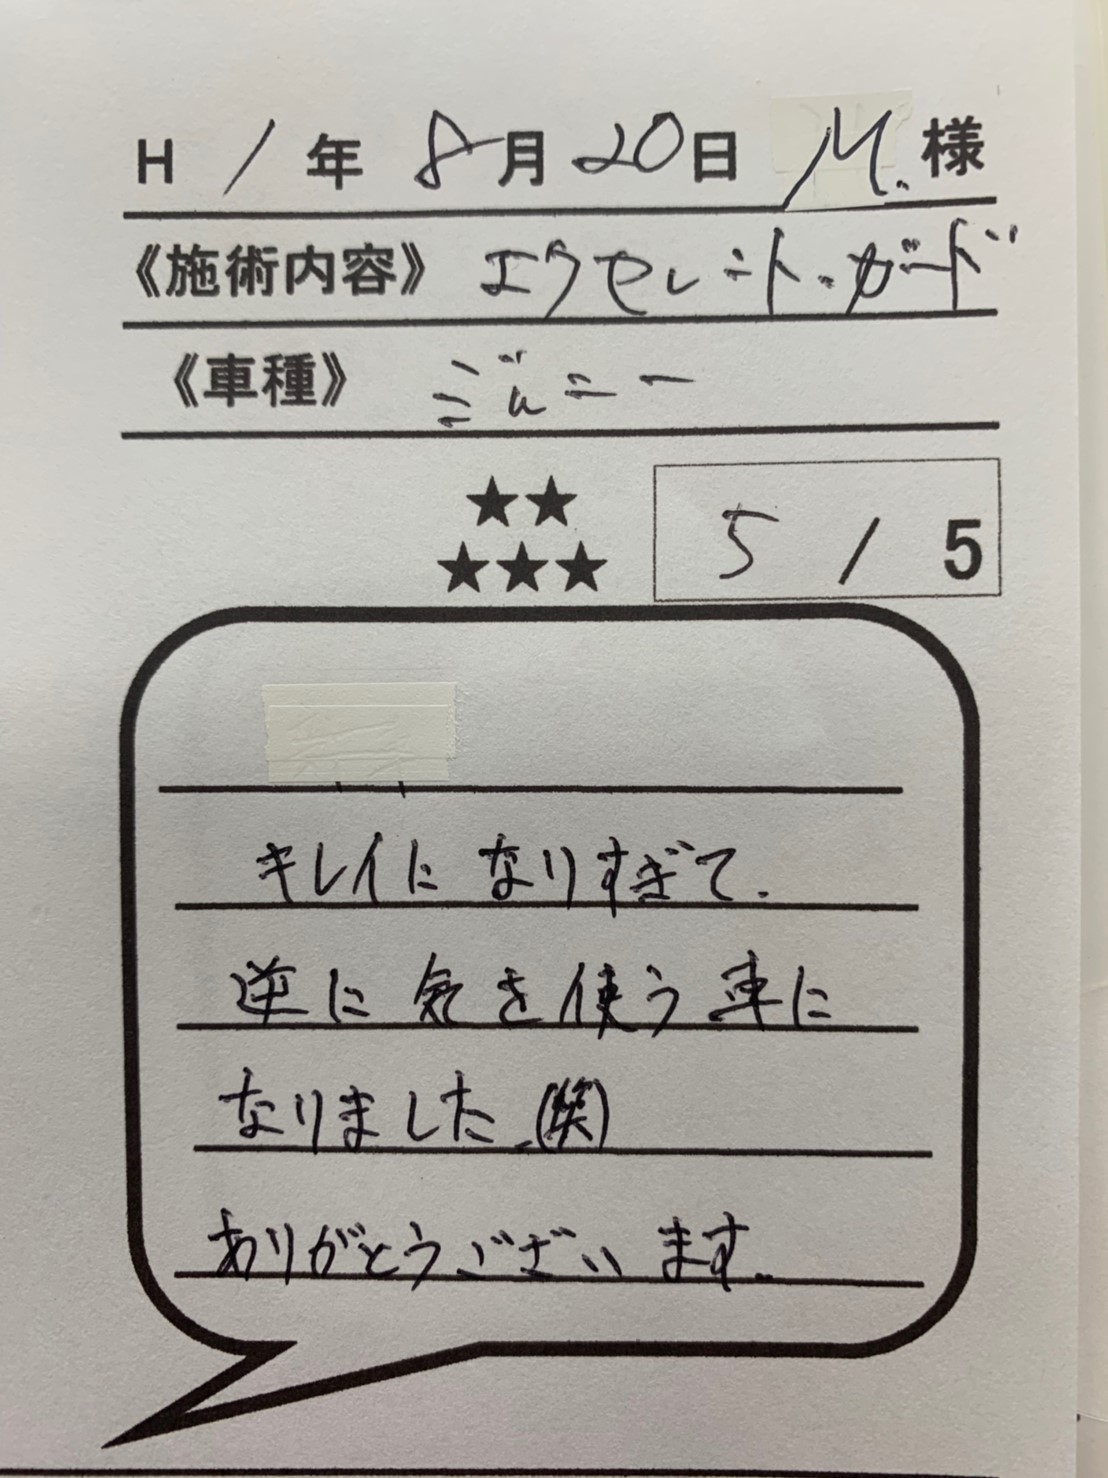 H 1年 8月20日 M.様
《施術内容》 エクセレント・ガード
《車種》 ジムニー
★★
★★★
5 / 5
キレイになりすぎて、
逆に気を使う車に
なりました。(笑)
ありがとうございます。